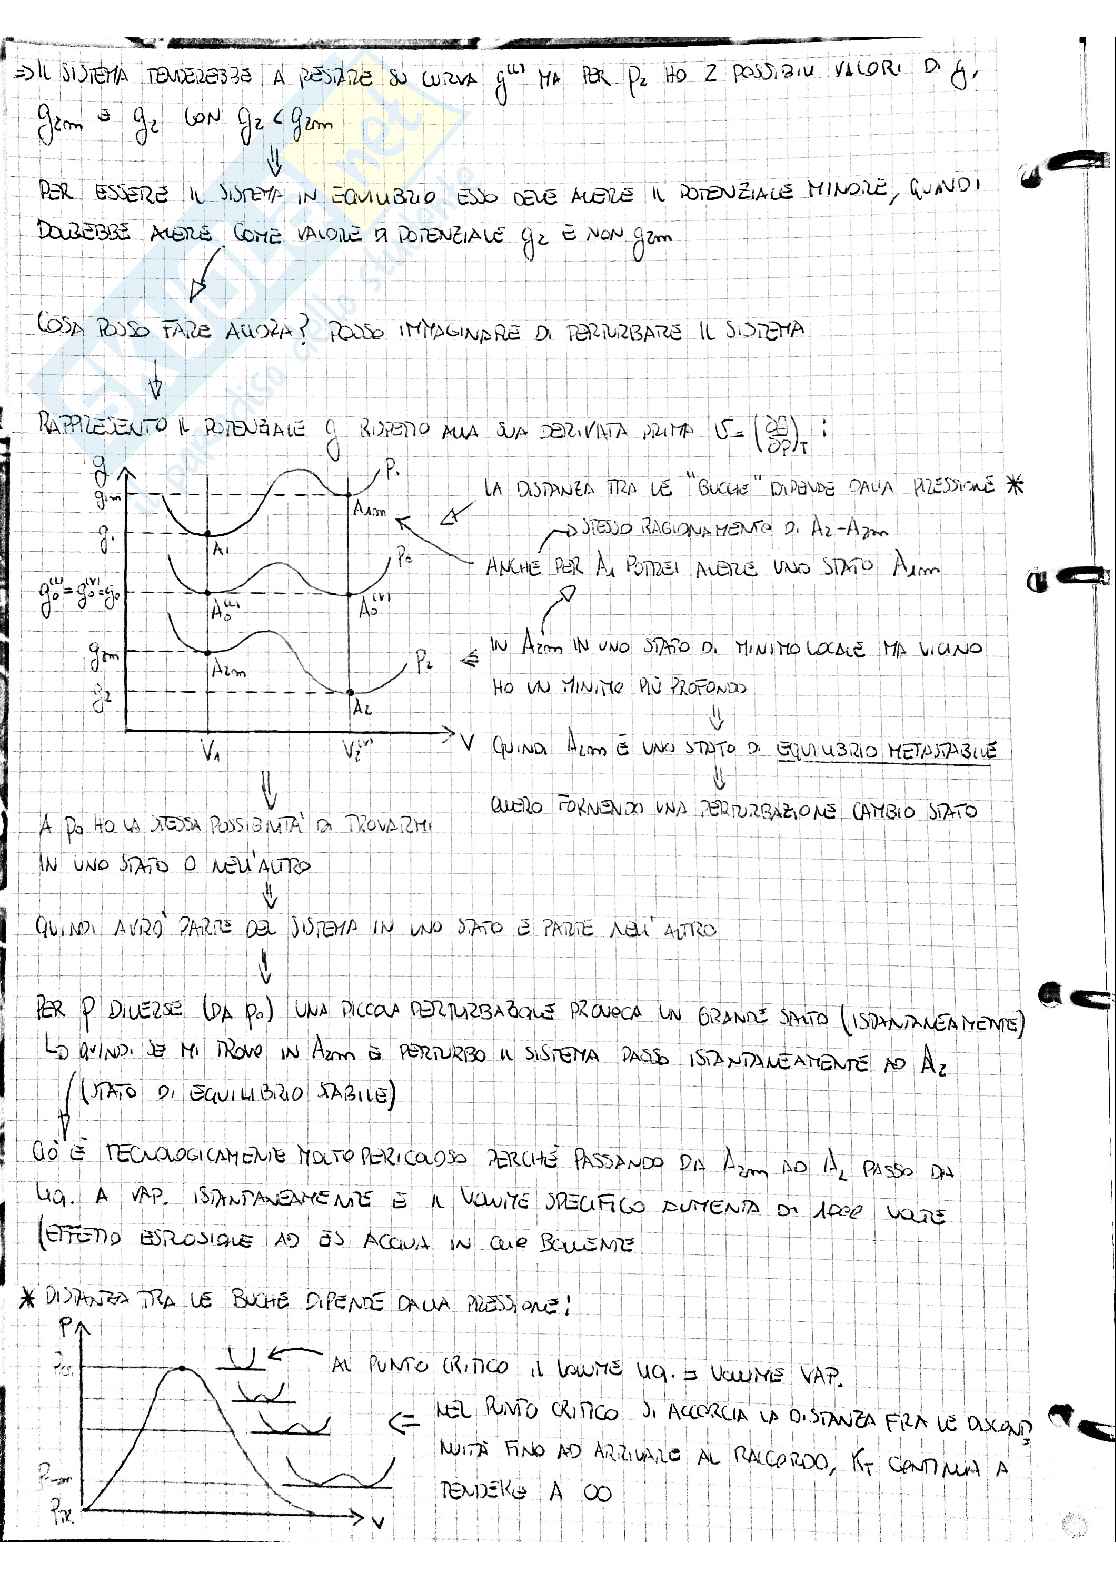 ⇒ IL SISTEMA TENDEREBBE A RESTARE SU CURVA g⁽ᴸ⁾ MA PER p₂ HO 2 POSSIBILI VALORI DI g,
g₂ₘ E g₂ CON g₂ < g₂ₘ
PER ESSERE IL SISTEMA IN EQUILIBRIO ESSO DEVE AVERE IL POTENZIALE MINORE, QUINDI
DOVREBBE AVERE COME VALORE DI POTENZIALE g₂ E NON g₂ₘ
COSA POSSO FARE ALLORA? POSSO IMMAGINARE DI PERTURBARE IL SISTEMA
RAPPRESENTO IL POTENZIALE g RISPETTO ALLA SUA DERIVATA PRIMA v = (∂g/∂p)T :
g
g₁ₘ
P₁
A₁ₘ
g₁
A₁
P₀
g₀⁽ᴸ⁾ = g₀⁽ⱽ⁾ = g₀
A₀⁽ᴸ⁾
A₀⁽ⱽ⁾
g₂ₘ
A₂ₘ
P₂
g₂
A₂
V₁
V₂⁽ⱽ⁾
V
LA DISTANZA TRA LE "BUCHE" DIPENDE DALLA PRESSIONE *
→ STESSO RAGIONAMENTO DI A₂-A₂ₘ
ANCHE PER A₁ POTREI AVERE UNO STATO A₁ₘ
IN A₂ₘ IN UNO STATO DI MINIMO LOCALE MA VICINO
HO UN MINIMO PIÙ PROFONDO
QUINDI A₂ₘ È UNO STATO DI EQUILIBRIO METASTABILE
OVVERO FORNENDO UNA PERTURBAZIONE CAMBIO STATO
A p₀ HO LA STESSA POSSIBILITA' DI TROVARMI
IN UNO STATO O NELL'ALTRO
QUINDI AVRO' PARTE DEL SISTEMA IN UNO STATO E PARTE NELL'ALTRO
PER p DIVERSE (DA p₀) UNA PICCOLA PERTURBAZIONE PROVOCA UN GRANDE SALTO (ISTANTANEAMENTE)
↳ QUINDI SE MI TROVO IN A₂ₘ E PERTURBO IL SISTEMA PASSO ISTANTANEAMENTE AD A₂
(STATO DI EQUILIBRIO STABILE)
CIÒ È TECNOLOGICAMENTE MOLTO PERICOLOSO PERCHÉ PASSANDO DA A₂ₘ AD A₂ PASSO DA
LIQ. A VAP. ISTANTANEAMENTE E IL VOLUME SPECIFICO AUMENTA DI 1000 VOLTE
(EFFETTO ESPLOSIONE AD ES ACQUA IN OLIO BOLLENTE
* DISTANZA TRA LE BUCHE DIPENDE DALLA PRESSIONE:
P
V
AL PUNTO CRITICO IL VOLUME LIQ. = VOLUME VAP.
NEL PUNTO CRITICO SI ACCORCIA LA DISTANZA FRA LE DISCONTI-
NUITÀ FINO AD ARRIVARE AL RACCORDO, KT CONTINUA A
TENDERE A ∞